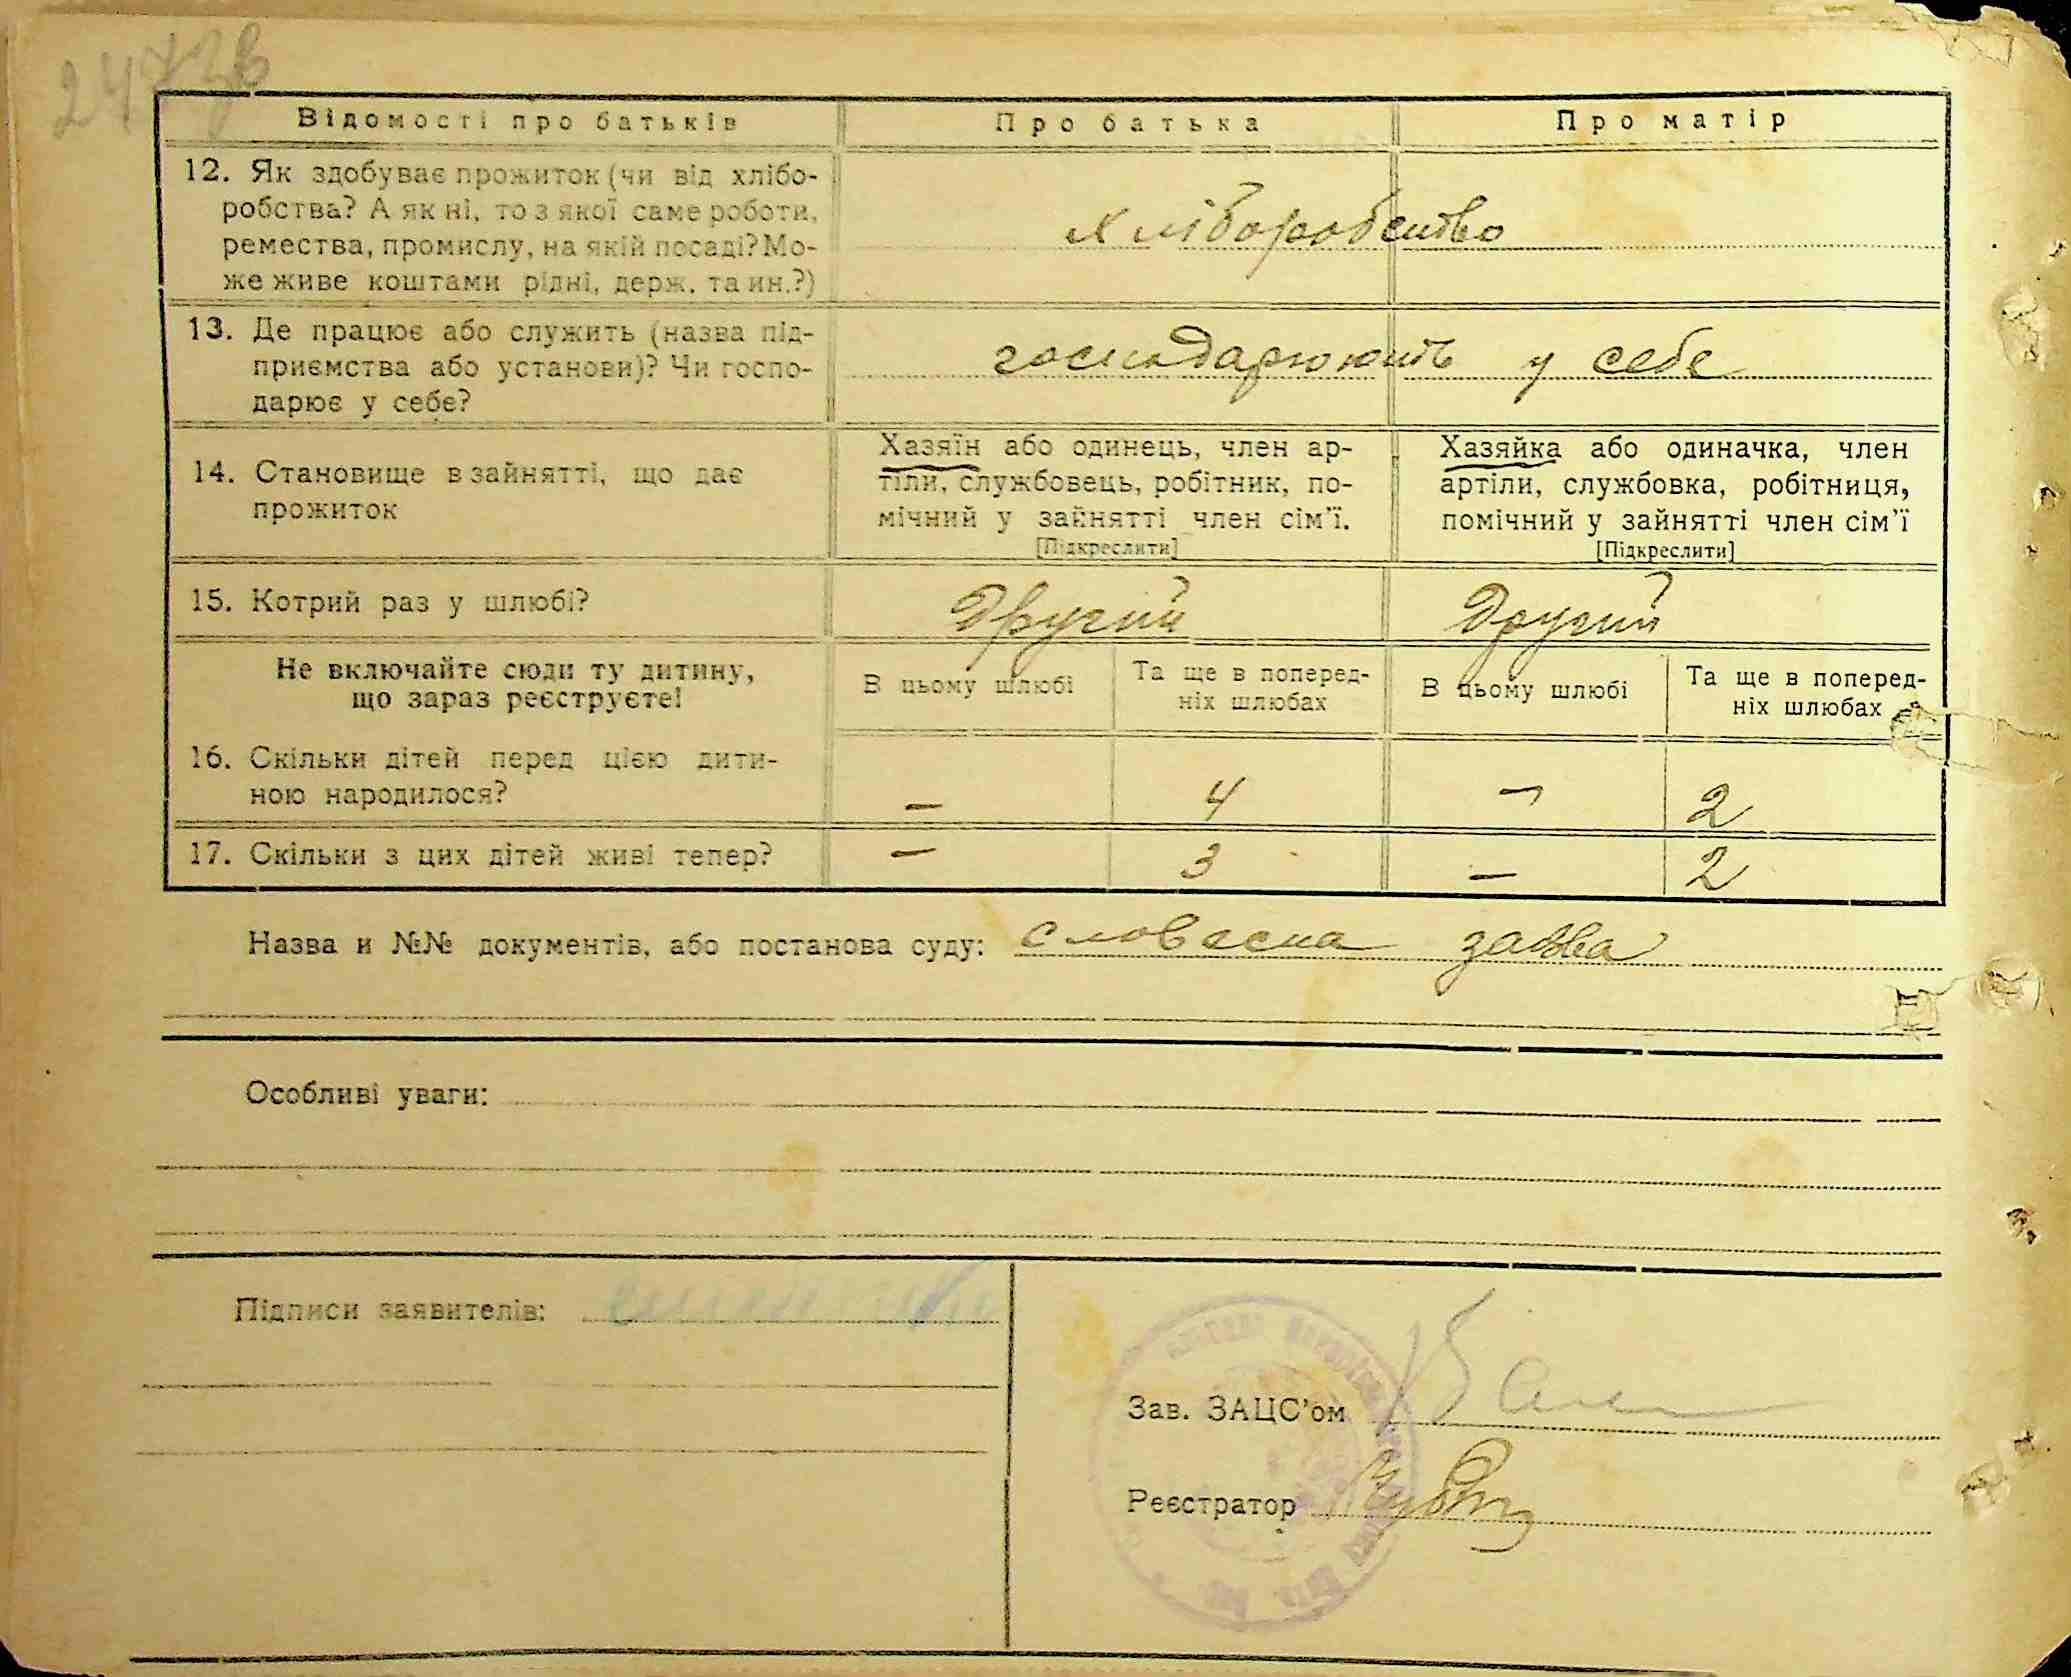 Відомості про батьків
Про батька
Про матір
12. Як здобуває прожиток (чи від хлібо-
робства? А як ні, то з якої саме роботи,
ремества, промислу, на якій посаді? Мо-
же живе коштами рідні, держ. та ин.?)
хліборобство
13. Де працює або служить (назва під-
приємства або установи)? Чи госпо-
дарює у себе?
господарюють у себе
14. Становище в зайнятті, що дає
прожиток
Хазяїн або одинець, член ар-
тіли, службовець, робітник, по-
мічний у зайнятті член сім'ї.
[Підкреслити]
Хазяйка або одиначка, член
артіли, службовка, робітниця,
помічний у зайнятті член сім'ї
[Підкреслити]
15. Котрий раз у шлюбі?
Другий
Другий
Не включайте сюди ту дитину,
що зараз реєструєте!
В цьому шлюбі
Та ще в поперед-
ніх шлюбах
В цьому шлюбі
Та ще в поперед-
ніх шлюбах
16. Скільки дітей перед цією дити-
ною народилося?
— 4 — 2
17. Скільки з цих дітей живі тепер?
— 3 — 2
Назва и №№ документів, або постанова суду: словесна заява
Особливі уваги:
Підписи заявителів:
Зав. ЗАЦС'ом
Реєстратор